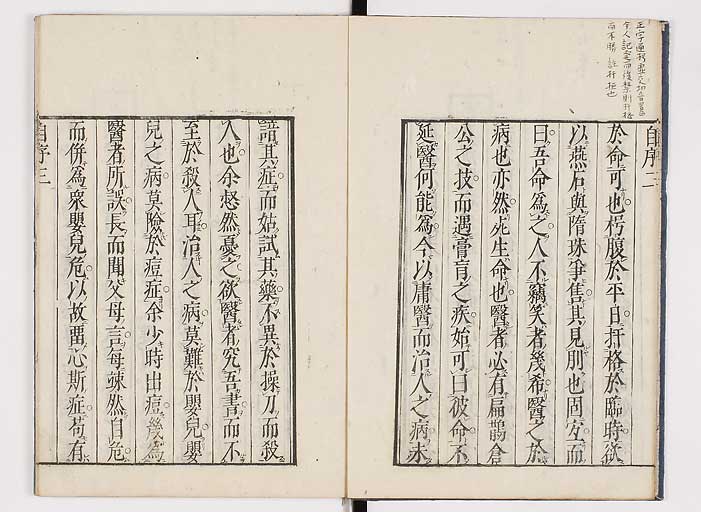 自序二
於命可也枵腹於平日扞格於臨時欲
以燕石與隋珠爭售其見刖也固宜而
曰吾命爲之人不竊笑者幾希醫之於
病也亦然死生命也醫者必有扁鵲倉
公之技而遇膏肓之疾始可曰彼命不
延醫何能爲今以庸醫而治人之病未
諳其症而姑試其藥不異於操刀而殺
人也余愁然憂之欲醫者究吾書而不
至於殺人耳治人之病莫難於嬰兒嬰
兒之病莫險於痘症余少時出痘幾爲
醫者所誤長而聞父母言每竦然自危
而併爲衆嬰兒危以故畱心斯症苟有
自序三